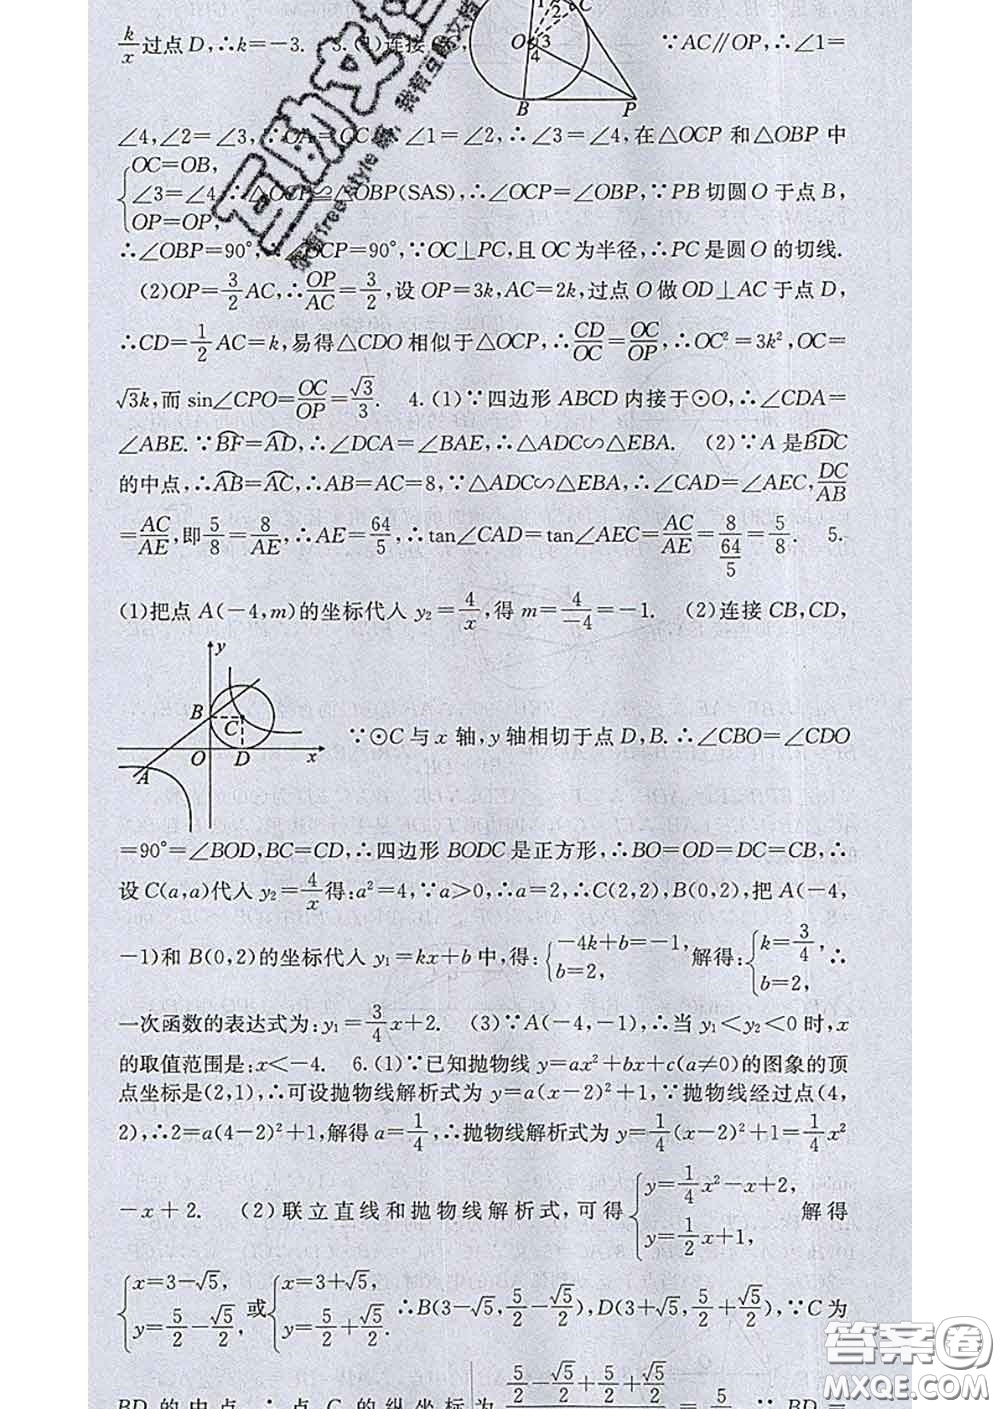 k/x过点D,∴k=-3. 3.(1)连接OC, ∵AC∥OP,∴∠1=
1 2 C O 3 4 B P
∠4,∠2=∠3,∵OA=OC ∠1=∠2,∴∠3=∠4,在△OCP 和△OBP 中
{OC=OB,
∠3=∠4 ∴△OCP≌△OBP(SAS),∴∠OCP=∠OBP,∵PB切圆O于点B,
OP=OP,
∴∠OBP=90°,∴∠OCP=90°,∵OC⊥PC,且OC为半径,∴PC是圆O的切线.
(2)OP=3/2AC,∴OP/AC=3/2,设OP=3k,AC=2k,过点O做OD⊥AC于点D,
∴CD=1/2AC=k,易得△CDO相似于△OCP,∴CD/OC=OC/OP,∴OC²=3k²,OC=
√3k,而sin∠CPO=OC/OP=√3/3. 4.(1)∵四边形ABCD内接于⊙O,∴∠CDA=
∠ABE.∵BF⌒=AD⌒,∴∠DCA=∠BAE,∴△ADC∽△EBA. (2)∵A是BDC⌒
的中点,∴AB⌒=AC⌒,∴AB=AC=8,∵△ADC∽△EBA,∴∠CAD=∠AEC,DC/AB
=AC/AE,即5/8=8/AE,∴AE=64/5,∴tan∠CAD=tan∠AEC=AC/AE=8/(64/5)=5/8. 5.
(1)把点A(-4,m)的坐标代人y₂=4/x,得m=4/-4=-1. (2)连接CB,CD,
y B C O D x A
∵⊙C与x轴,y轴相切于点D,B.∴∠CBO=∠CDO
=90°=∠BOD,BC=CD,∴四边形BODC是正方形,∴BO=OD=DC=CB,∴
设C(a,a)代人y₂=4/x得:a²=4,∵a>0,∴a=2,∴C(2,2),B(0,2),把A(-4,
-1)和B(0,2)的坐标代人y₁=kx+b中,得:{-4k+b=-1, b=2, 解得:{k=3/4, b=2, ∴
一次函数的表达式为:y₁=3/4x+2. (3)∵A(-4,-1),∴当y₁<y₂<0时,x
的取值范围是:x<-4. 6.(1)∵已知抛物线y=ax²+bx+c(a≠0)的图象的顶
点坐标是(2,1),∴可设抛物线解析式为y=a(x-2)²+1,∵抛物线经过点(4,
2),∴2=a(4-2)²+1,解得a=1/4,∴抛物线解析式为y=1/4(x-2)²+1=1/4x²
-x+2. (2)联立直线和抛物线解析式,可得{y=1/4x²-x+2, y=1/2x+1, 解得
{x=3-√5, y=5/2-√5/2, 或{x=3+√5, y=5/2+√5/2. ∴B(3-√5,5/2-√5/2),D(3+√5,5/2+√5/2),∵C为
BD的中点,∴点C的纵坐标为(5/2-√5/2+5/2+√5/2)/ =5/ ∵BD=
答案圈
MXQE.COM